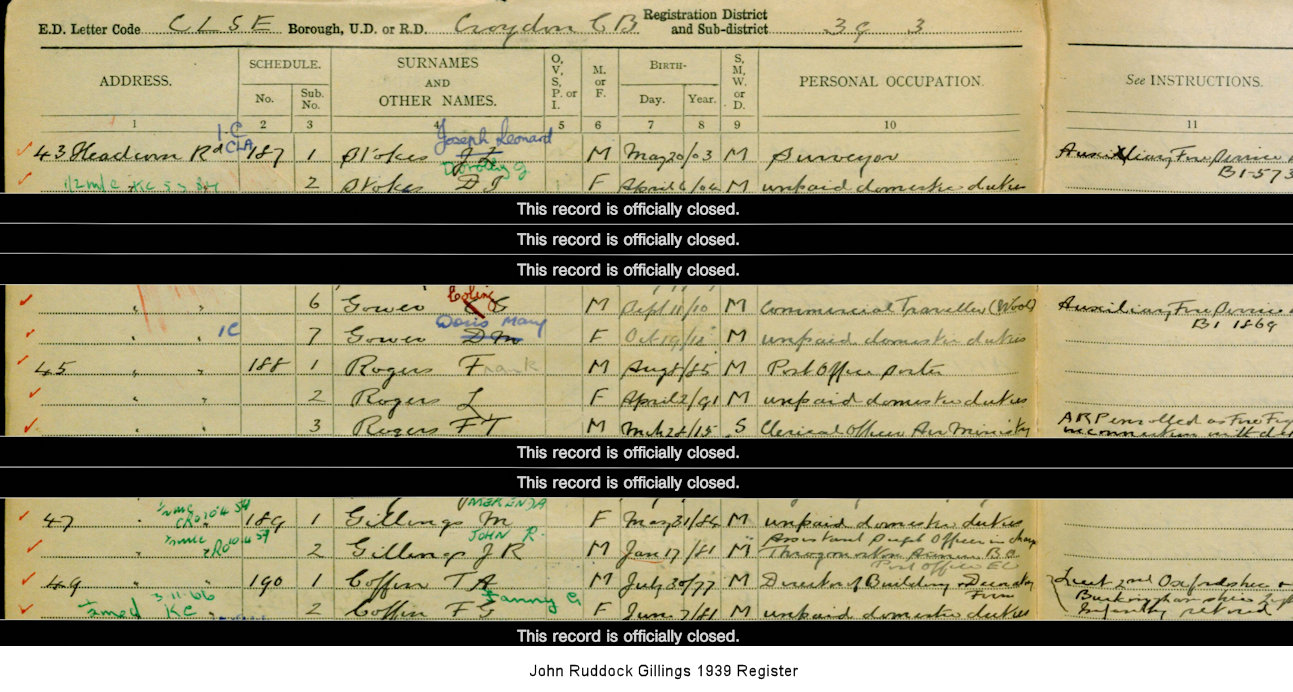 E.D. Letter Code CLSE Borough, U.D. or R.D. Croydon C B Registration District and Sub-district 39 3
ADDRESS. SCHEDULE. No. Sub. No. SURNAMES AND OTHER NAMES. O, V, S, P, or I. M. or F. BIRTH- Day. Year. S, M, W, or D. PERSONAL OCCUPATION. See INSTRUCTIONS.
1 2 3 4 5 6 7 8 9 10 11
1 C CLA Joseph Leonard
43 Headcorn Rd 187 1 Stokes J L M May 20/03 M Surveyor Auxiliary Fire Service
B1-573
Dorothy J
1/2 m/c KC 2 Stokes D I F April 6/04 M unpaid domestic duties
This record is officially closed.
This record is officially closed.
This record is officially closed.
" " 6 Gower G M Sept 11/10 M Commercial Traveller (Wool) Auxiliary Fire Service
B1 1869
Doris Mary
" " 1C 7 Gower D M F Oct 19/12 M unpaid domestic duties
45 " " 188 1 Rogers Frank M Aug 8/85 M Post Office porter
" " 2 Rogers L F April 2/91 M unpaid domestic duties
" " 3 Rogers F T M Mch 28/15 S Clerical Officer Air Ministry ARP enrolled as Fire
in connection with
This record is officially closed.
This record is officially closed.
47 " 189 1 Gillings M F May 31/84 M unpaid domestic duties
JOHN R.
" " 2 Gillings J R M Jan 17/81 M Assistant Supt Officer in charge
Post Office EC
49 " " 190 1 Coffin T A M July 30/77 M Director of Building Lieut 2nd Oxfordshire
Firm Buckinghamshire
Fanny G
3-11-66 KC 2 Coffin F G F June 7/81 M unpaid domestic duties Infantry retired
This record is officially closed.
John Ruddock Gillings 1939 Register